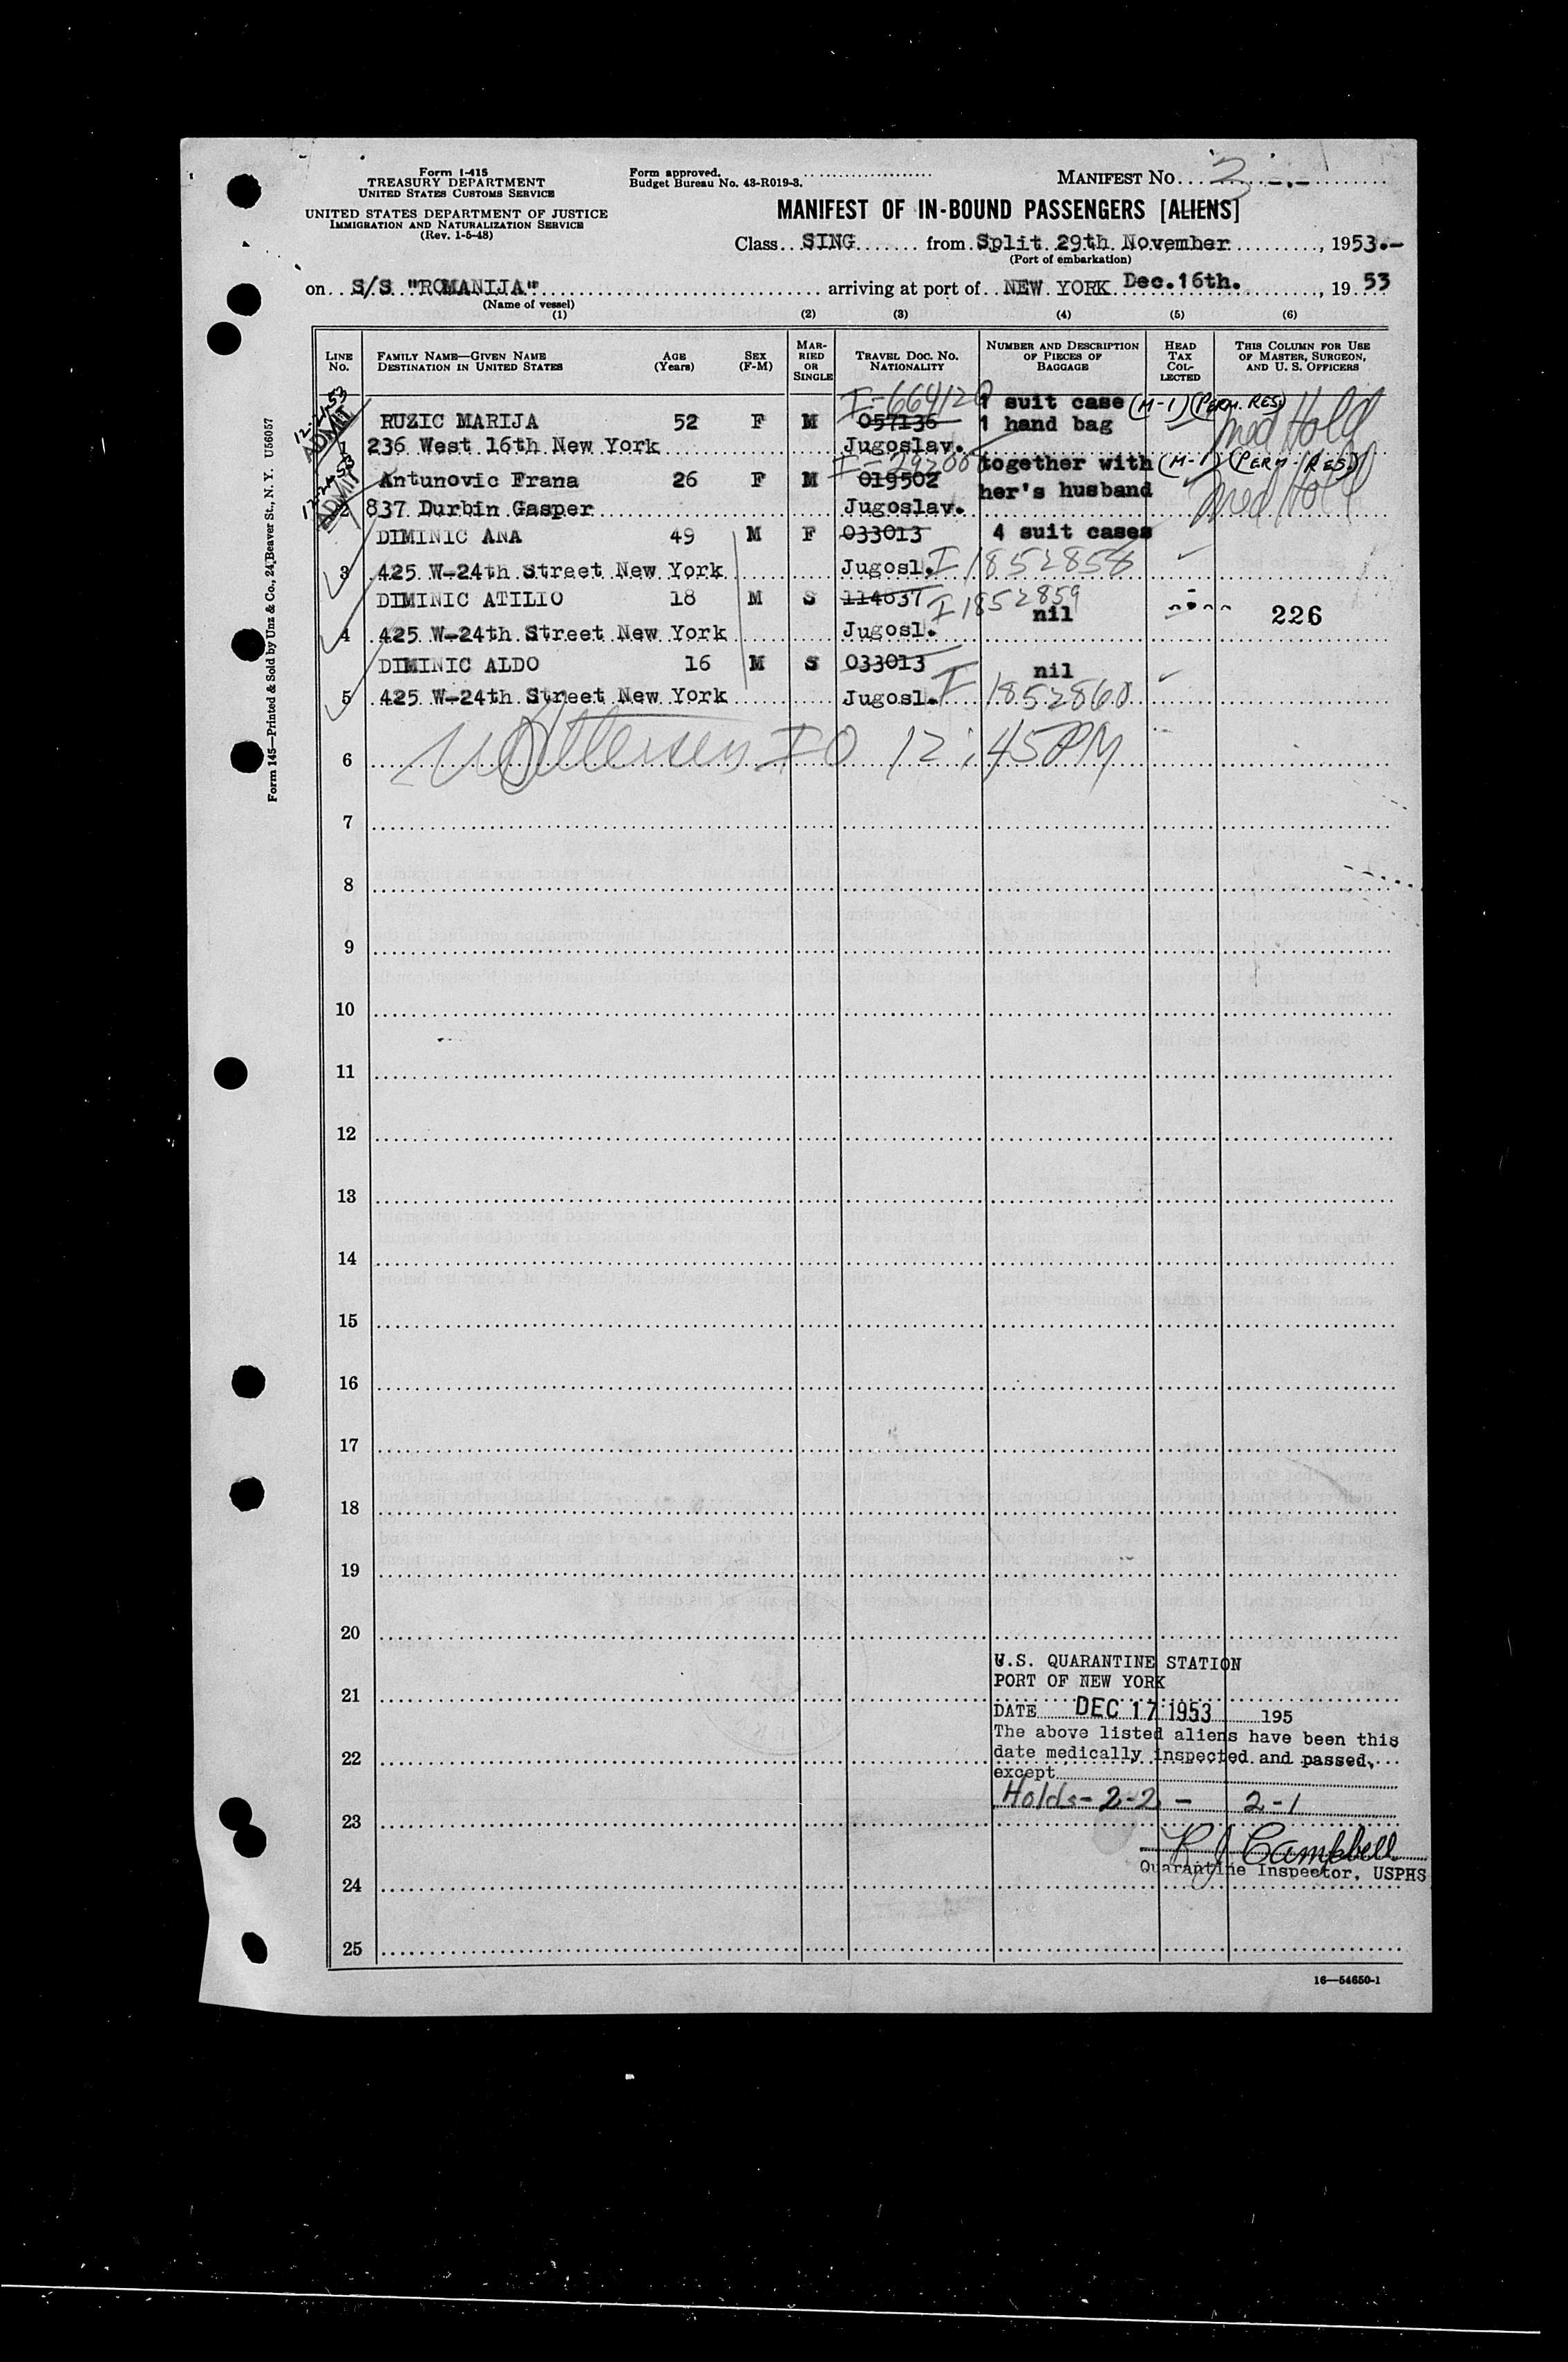 Form I-415
TREASURY DEPARTMENT
UNITED STATES CUSTOMS SERVICE
UNITED STATES DEPARTMENT OF JUSTICE
IMMIGRATION AND NATURALIZATION SERVICE
(Rev. 1-5-48)
Form approved.
Budget Bureau No. 43-R019-3.
MANIFEST NO. 2
MANIFEST OF IN-BOUND PASSENGERS [ALIENS]
Class SING from Split 29th November, 1953.-
(Port of embarkation)
on S/S "ROMANIJA" arriving at port of NEW YORK Dec.16th., 19 53
(Name of vessel)
(1) (2) (3) (4) (5) (6)
LINE NO. FAMILY NAME—GIVEN NAME DESTINATION IN UNITED STATES AGE (Years) SEX (F-M) MARRIED OR SINGLE TRAVEL DOC. NO. NATIONALITY NUMBER AND DESCRIPTION OF PIECES OF BAGGAGE HEAD TAX COLLECTED THIS COLUMN FOR USE OF MASTER, SURGEON, AND U. S. OFFICERS
12-21-53 ADMIT I-664120 1 suit case (M-1) (PERM. RES)
RUZIC MARIJA 52 F M 057136 1 hand bag Med Hold
1 236 West 16th New York Jugoslav.
12-24-53 ADMIT together with (M-1) (PERM. RES)
Antunovic Frana 26 F M 019502 her's husband Med Hold
2 837 Durbin Gasper Jugoslav.
DIMINIC ANA 49 M F 033013 4 suit cases
3 425 W-24th Street New York Jugosl. I 1852858
DIMINIC ATILIO 18 M S 114637 I 1852859 nil 226
4 425 W-24th Street New York Jugosl.
DIMINIC ALDO 16 M S 033013 nil
5 425 W-24th Street New York Jugosl. I 1852860
6 IO 12:45PM
7
8
9
10
11
12
13
14
15
16
17
18
19
20
21
22
23
24
25
U.S. QUARANTINE STATION
PORT OF NEW YORK
DATE DEC 17 1953 195
The above listed aliens have been this
date medically inspected and passed,
except
Holds - 2-2 - 2-1
R J Campbell
Quarantine Inspector, USPHS
16—54650-1
Form 145—Printed & Sold by Unz & Co., 24 Beaver St., N. Y. U56057